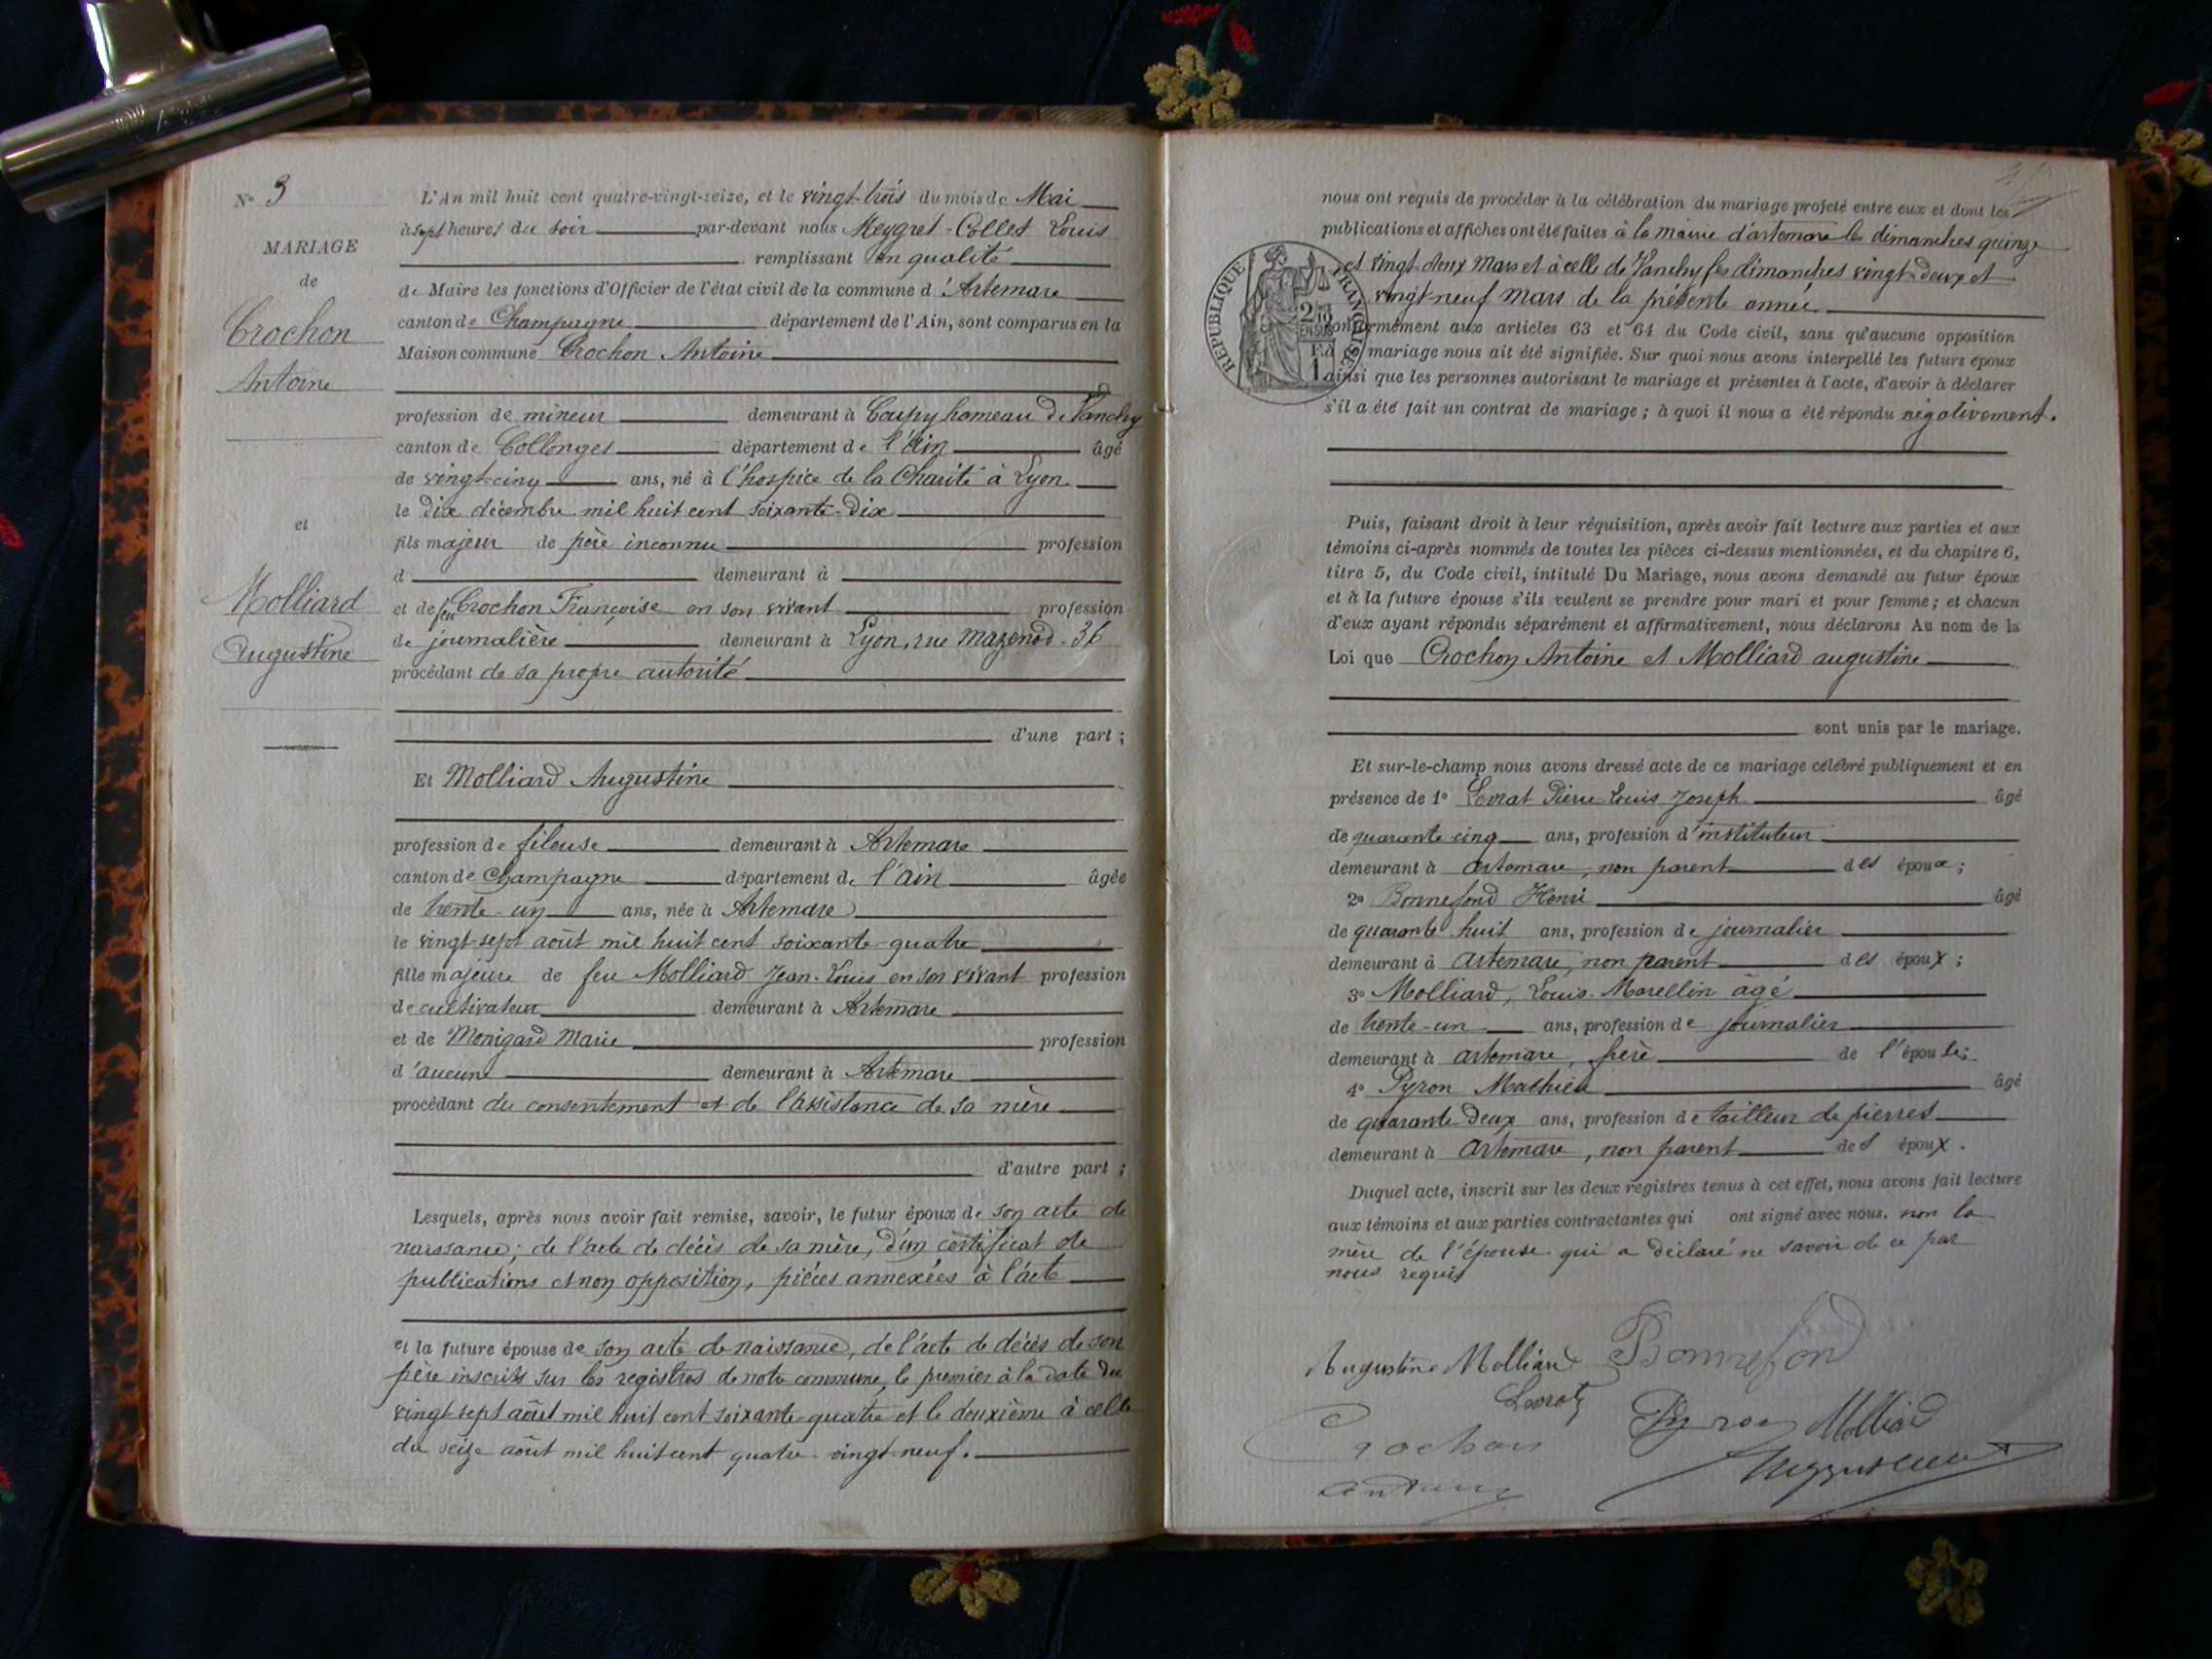 N° 3
MARIAGE
de
Crochon
Antoine
et
Molliard
Augustine
L'An mil huit cent quatre-vingt-seize, et le vingt-trois du mois de Mai
à sept heures du soir par-devant nous Meygret-Collet Louis
remplissant en qualité
de Maire les fonctions d'Officier de l'état civil de la commune d'Artemare
canton de Champagne département de l'Ain, sont comparus en la
Maison commune Crochon Antoine
profession de mineur demeurant à Coupy hameau de Vanchy
canton de Collonges département de l'Ain âgé
de vingt-cinq ans, né à l'hospice de la Charité à Lyon
le dix décembre mil huit cent soixante-dix
fils majeur de père inconnu profession
d demeurant à
et de feu Crochon Françoise en son vivant profession
de journalière demeurant à Lyon, rue Mazenod-36
procédant de sa propre autorité
d'une part ;
Et Molliard Augustine
profession de fileuse demeurant à Artemare
canton de Champagne département de l'ain âgée
de trente-un ans, née à Artemare
le vingt-sept août mil huit cent soixante-quatre
fille majeure de feu Molliard Jean-Louis en son vivant profession
de cultivateur demeurant à Artemare
et de Monigard Marie profession
d'aucune demeurant à Artemare
procédant du consentement et de l'assistance de sa mère
d'autre part ;
Lesquels, après nous avoir fait remise, savoir, le futur époux de son acte de
naissance; de l'acte de décès de sa mère, d'un certificat de
publications et non opposition, pièces annexées à l'acte
et la future épouse de son acte de naissance, de l'acte de décès de son
père inscrits sur les registres de notre commune, le premier à la date du
vingt sept août mil huit cent soixante-quatre et le deuxième à celle
du seize août mil huit cent quatre-vingt-neuf.
nous ont requis de procéder à la célébration du mariage projeté entre eux et dont les
publications et affiches ont été faites à la mairie d'artemare les dimanches quinze
et vingt-deux Mars et à celle de Vanchy les dimanches vingt-deux et
vingt-neuf Mars de la présente année
RÉPUBLIQUE FRANÇAISE
conformément aux articles 63 et 64 du Code civil, sans qu'aucune opposition
mariage nous ait été signifiée. Sur quoi nous avons interpellé les futurs époux
ainsi que les personnes autorisant le mariage et présentes à l'acte, d'avoir à déclarer
s'il a été fait un contrat de mariage ; à quoi il nous a été répondu négativement.
Puis, faisant droit à leur réquisition, après avoir fait lecture aux parties et aux
témoins ci-après nommés de toutes les pièces ci-dessus mentionnées, et du chapitre 6,
titre 5, du Code civil, intitulé Du Mariage, nous avons demandé au futur époux
et à la future épouse s'ils veulent se prendre pour mari et pour femme ; et chacun
d'eux ayant répondu séparément et affirmativement, nous déclarons Au nom de la
Loi que Crochon Antoine et Molliard augustine
sont unis par le mariage.
Et sur-le-champ nous avons dressé acte de ce mariage célébré publiquement et en
présence de 1° Levrat Pierre Louis Joseph âgé
de quarante cinq ans, profession d'instituteur
demeurant à artemare, non parent des époux ;
2° Bonnefond Henri âgé
de quarante huit ans, profession de journalier
demeurant à artemare, non parent des époux ;
3° Molliard, Louis-Marellin âgé
de trente-un ans, profession de journalier
demeurant à artemare, frère de l'épouse;
4° Pyron Mathieu âgé
de quarante-deux ans, profession de tailleur de pierres
demeurant à Artemare, non parent des époux.
Duquel acte, inscrit sur les deux registres tenus à cet effet, nous avons fait lecture
aux témoins et aux parties contractantes qui ont signé avec nous. non la
mère de l'épouse qui a déclaré ne savoir de ce par
nous requis
Augustine Molliard Bonnefond
Levrat
Crochon Pyron Molliard
antoine